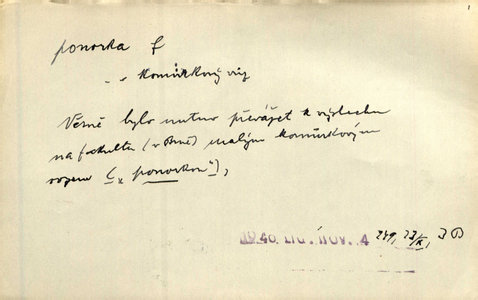 ponorka f
„ „ Komůrkový viz
Vězně bylo nutno převážet k výslechu
na fakultu (v Brně) malým komůrkovým
vozem („ponorkou“),
1946 LID. NOV. 4 249, 27/X, 3 B
1